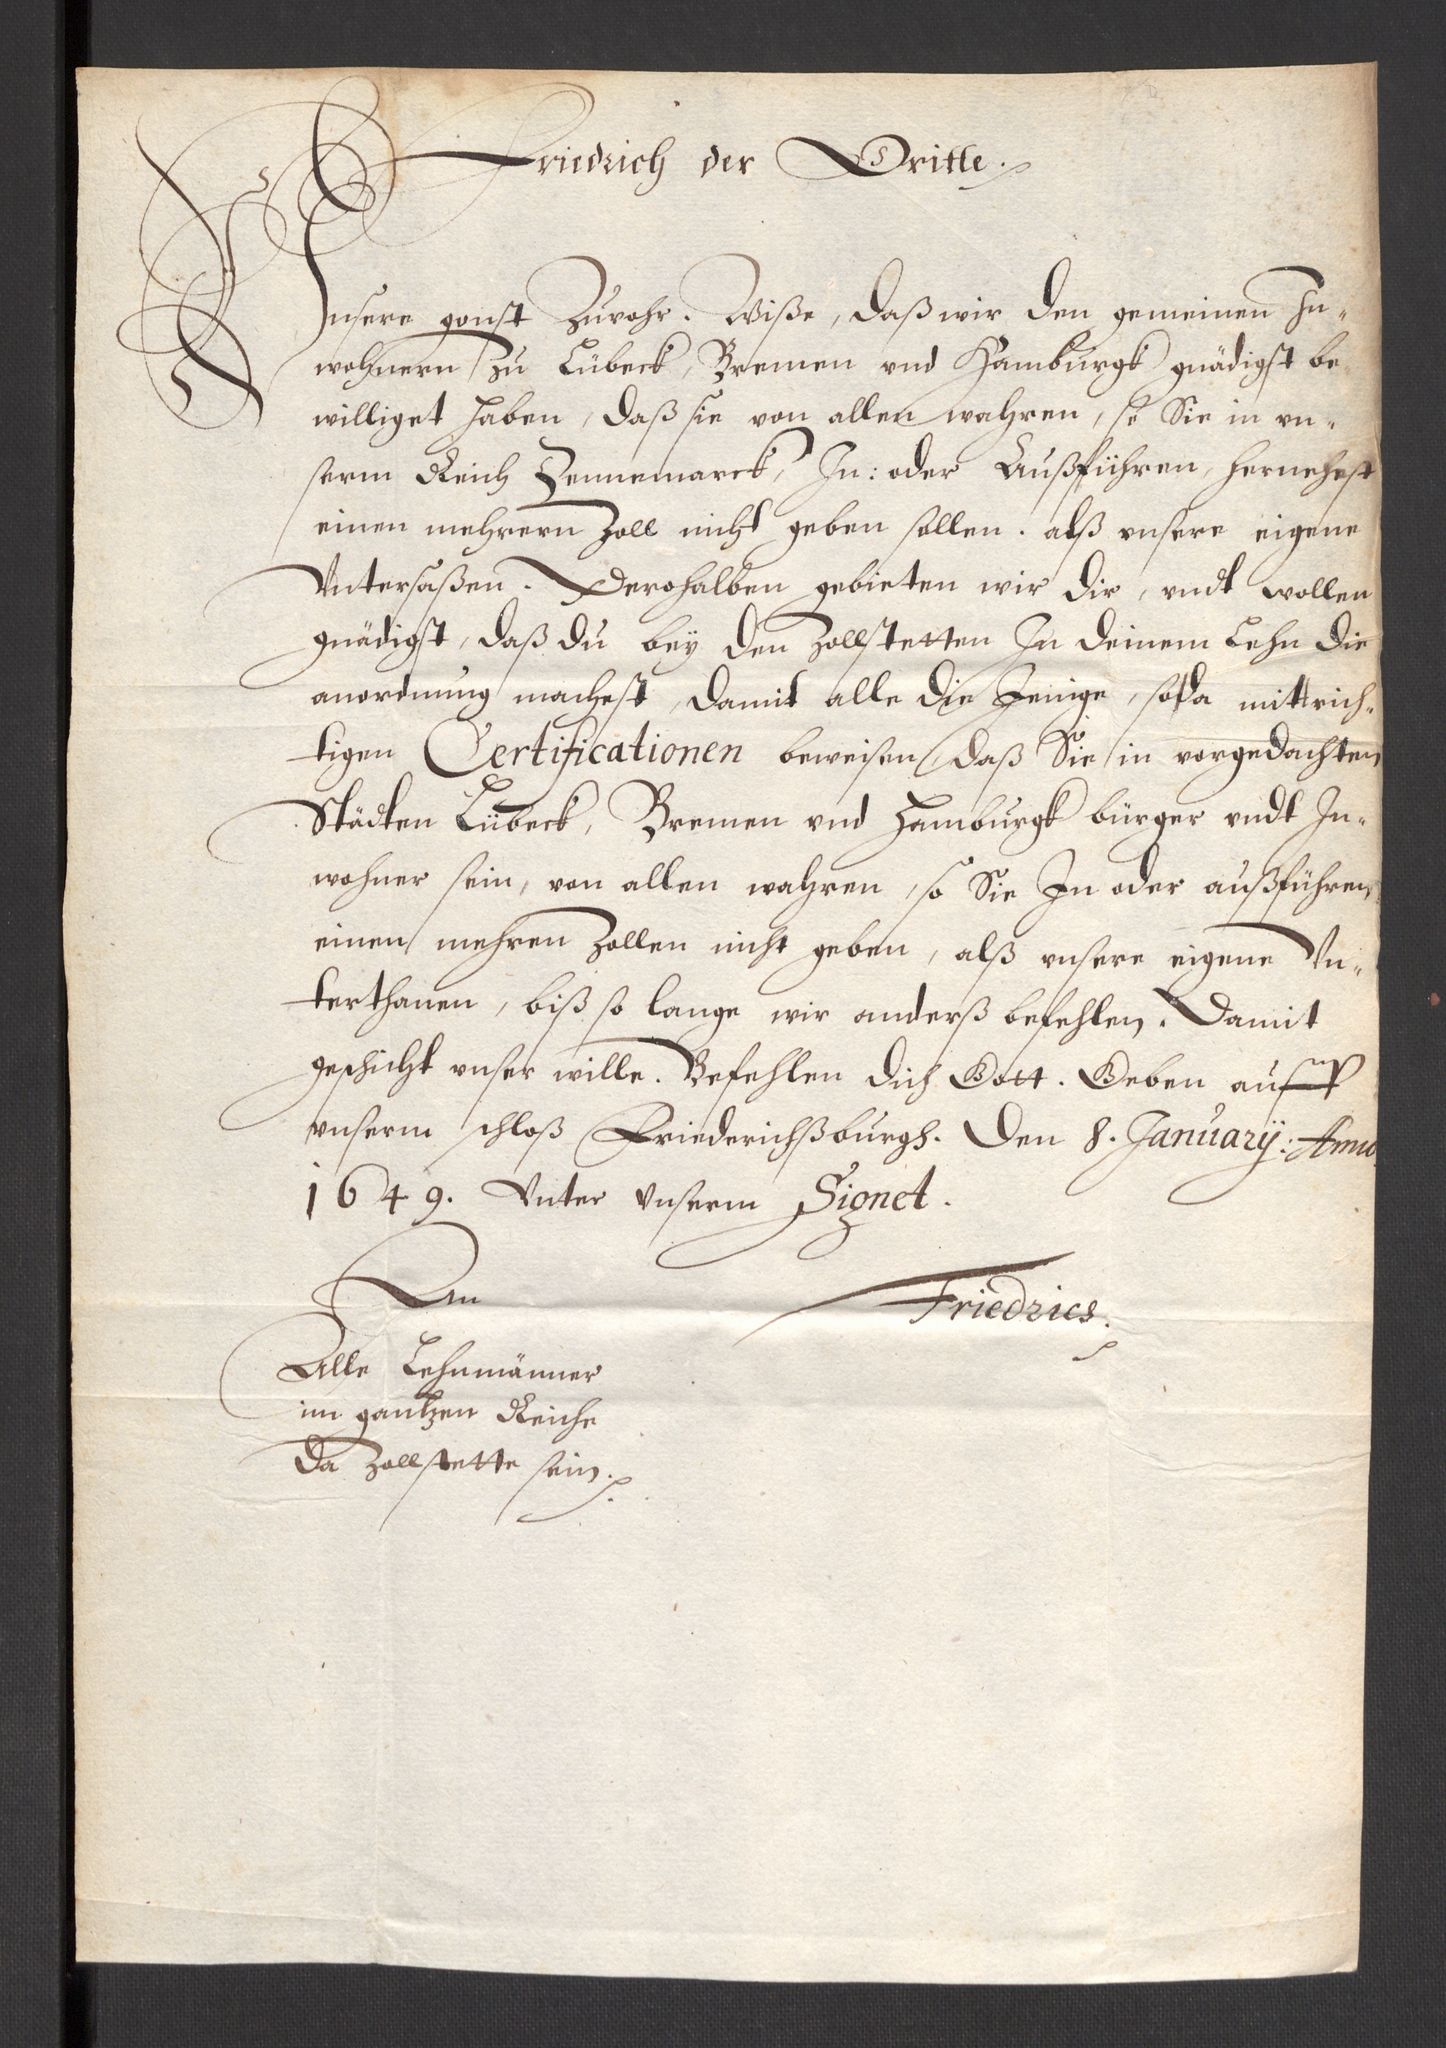 Friedrich der Dritte.
Unsere gonst Zuvohr. Wiße, daß wir den gemeinen In-
wohnern zu Lübeck, Bremen vnd Hamburgk gnädigst be-
williget haben, daß sie von allen wahren, so Sie in vn-
serm Reich Dennemarck, In: oder Außführen, hernehest
einen mehrern Zoll nicht geben sollen. alß vnsere eigene
Vntersaßen. Derohalben gebieten wir Dir, vndt wollen
gnädigst, daß du bey den Zollstetten In deinem Lehn die
anordnung machest, damit alle die Jenige, so da mit rich-
tigen Certificationen beweisen, daß Sie in vorgedachten
Städten Lübeck, Bremen vnd Hamburgk bürger vndt In-
wohner sein, von allen wahren, so Sie In oder außführen
einen mehren Zollen nicht geben, alß vnsere eigene Vn-
terthanen, biß so lange wir anderß befehlen. Damit
geschicht vnser wille. Befehlen dich Gott. Geben auff
vnserm schloß Friederichßburgh. Den 8. Januarij: Anno
1649. Vnter Vnserm Signet.
Friedrics.
An
Alle Lehnmänner
im gantzen Reiche
Da Zollstette sein.